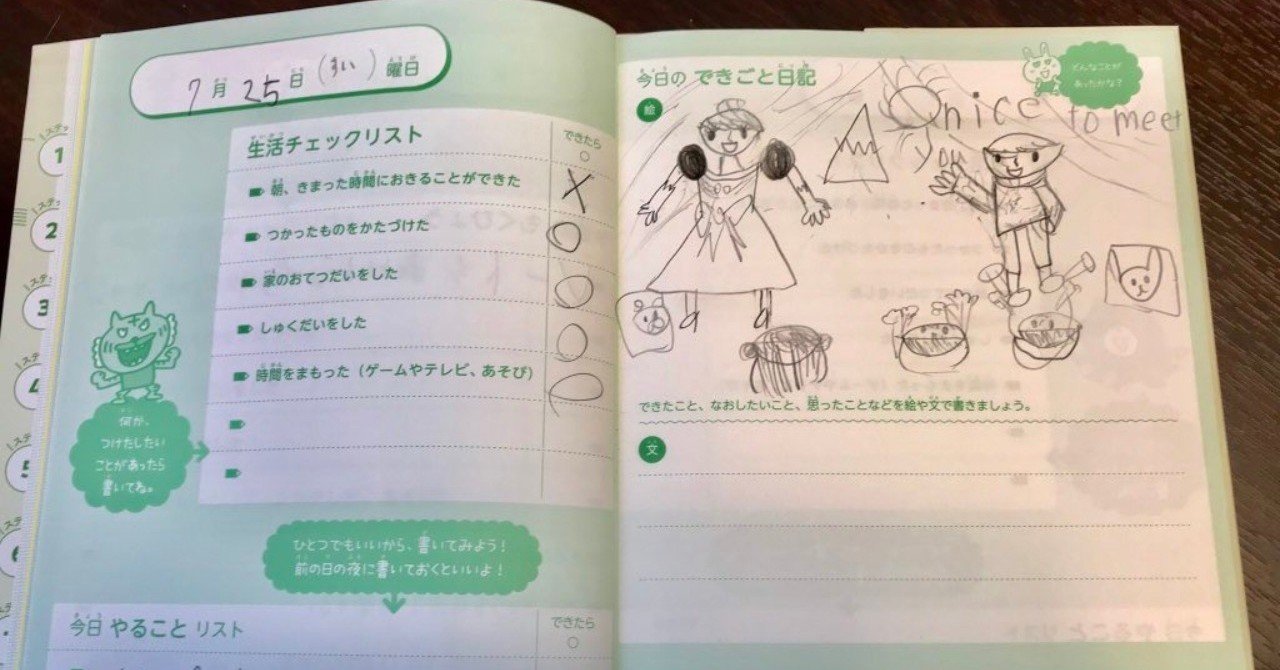 7月25日(すい)曜日
生活チェックリスト
できたら
○
朝、きまった時間におきることができた
×
つかったものをかたづけた
○
家のおてつだいをした
○
しゅくだいをした
○
時間をまもった（ゲームやテレビ、あそび）
○
何か、
つけたしたい
ことがあったら
書いてね。
ひとつでもいいから、書いてみよう！
前の日の夜に書いておくといいよ！
今日 やること リスト
できたら
○
ステップ
1
ステップ
2
ステップ
3
ステップ
4
ステップ
5
ステップ
6
今日の できごと日記
どんなことが
あったかな？
絵
nice to meet
y
できたこと、なおしたいこと、思ったことなどを絵や文で書きましょう。
文